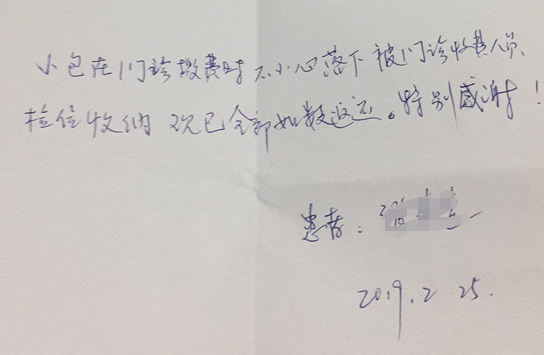 小包在门诊缴费时不小心落下被门诊收费人员、
捡位收纳 现已全部如数返还。特别感谢！
患者：
2019.2.25.